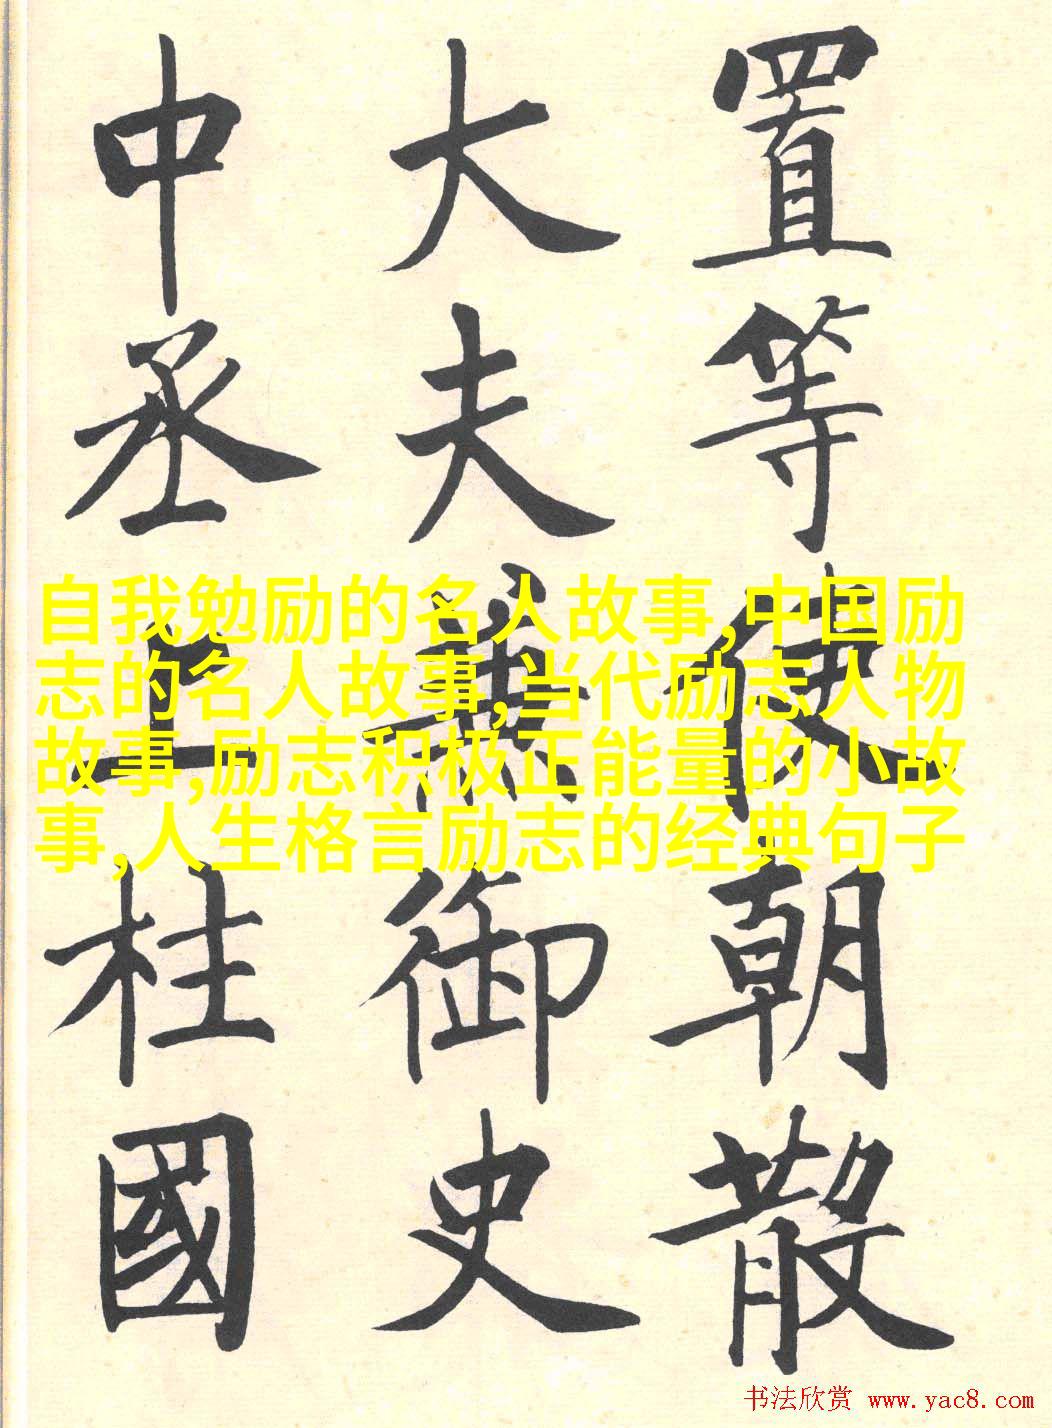 置等使朝散
大夫兼御史
中丞上柱國
自我勉励的名人故事,中国励
志的名人故事,当代励志人物
故事,励志积极正能量的小故
事,人生格言励志的经典句子
书法欣赏 www.yac8.com